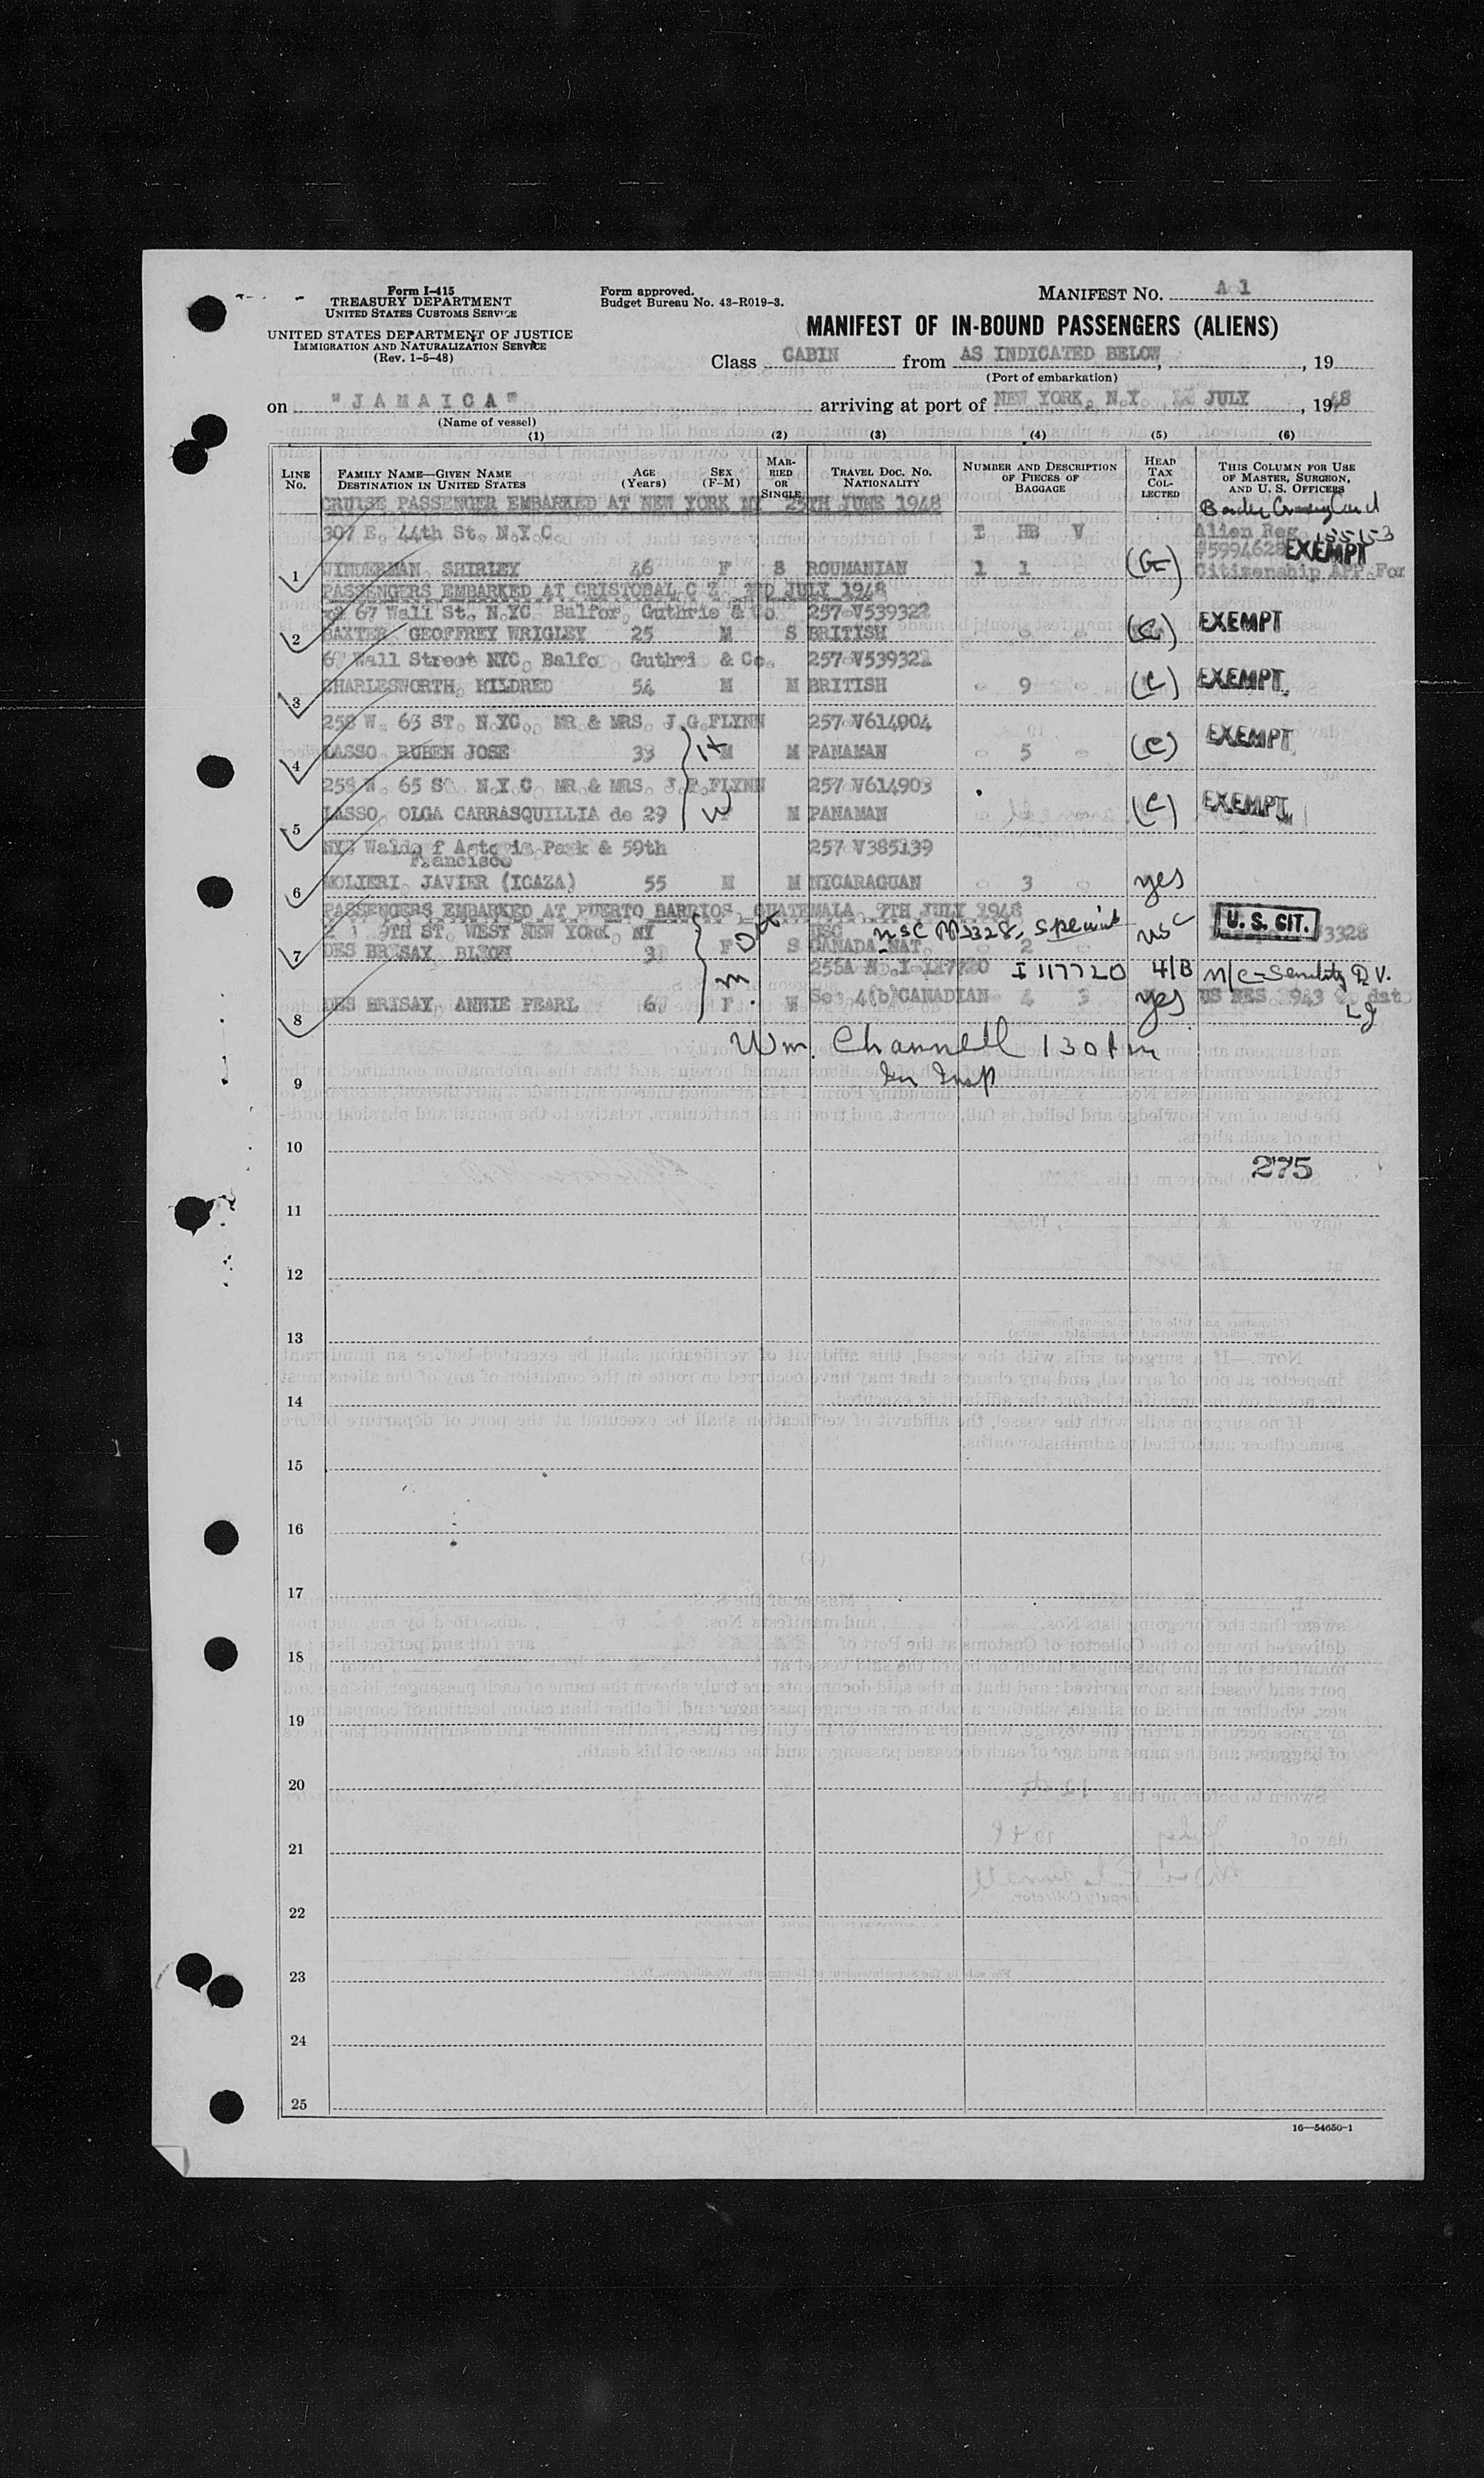 Form I-415
TREASURY DEPARTMENT
UNITED STATES CUSTOMS SERVICE
UNITED STATES DEPARTMENT OF JUSTICE
IMMIGRATION AND NATURALIZATION SERVICE
(Rev. 1-5-48)
Form approved.
Budget Bureau No. 43-R019-3.
MANIFEST NO. A 1
MANIFEST OF IN-BOUND PASSENGERS (ALIENS)
Class CABIN from AS INDICATED BELOW, , 19
(Port of embarkation)
on "JAMAICA" arriving at port of NEW YORK, N.Y. JULY, 1948
(Name of vessel)
(1) (2) (3) (4) (5) (6)
LINE No. FAMILY NAME—GIVEN NAME DESTINATION IN UNITED STATES AGE (Years) SEX (F-M) MARRIED OR SINGLE TRAVEL DOC. NO. NATIONALITY NUMBER AND DESCRIPTION OF PIECES OF BAGGAGE HEAD TAX COLLECTED THIS COLUMN FOR USE OF MASTER, SURGEON, AND U. S. OFFICERS
CRUISE PASSENGER EMBARKED AT NEW YORK NY 25TH JUNE 1948
307 E. 44th St. N.Y.C. T HB V Alien Reg. 155153
#5994628 EXEMPT
1 WINDERMAN SHIRLEY 46 F S ROUMANIAN 1 1 Citizenship APP. For
PASSENGERS EMBARKED AT CRISTOBAL C Z JULY 1948
67 Wall St. N.YC Balfor, Guthrie & Co. 257 V539322
2 BAXTER GEOFFREY WRIGLEY 25 M S BRITISH EXEMPT
Wall Street NYC, Balfo Guthri & Co. 257 V539321
3 CHARLESWORTH, MILDRED 54 M M BRITISH 9 EXEMPT
258 W. 63 ST. N.YC., MR & MRS. J.G.FLYNN 257 V614904
4 LASSO RUBEN JOSE 33 M M PANAMAN 5 (C) EXEMPT
W. 65 N.Y.C MR & MRS. J.P.FLYNN 257 V614903
5 LASSO, OLGA CARRASQUILLIA de 29 M PANAMAN (C) EXEMPT
Park & 59th 257 V385139
Francisco
6 MOLIERI, JAVIER (ICAZA) 55 M M NICARAGUAN 3 yes
PASSENGERS EMBARKED AT PUERTO BARRIOS, GUATEMALA, 7TH JULY 1948
9TH ST. WEST NEW YORK, NY USC U. S. CIT. 3328
7 DES BRISAY, F S CANADA NAT. 2
I 117720 4/B
8 DES BRISAY, ANNIE PEARL F W 4(b) CANADIAN 4 3 yes US RES 943
Wm. Channell 130 PM
Im Insp
9
10
275
11
12
13
14
15
16
17
18
19
20
21
22
23
24
25
16—54650-1